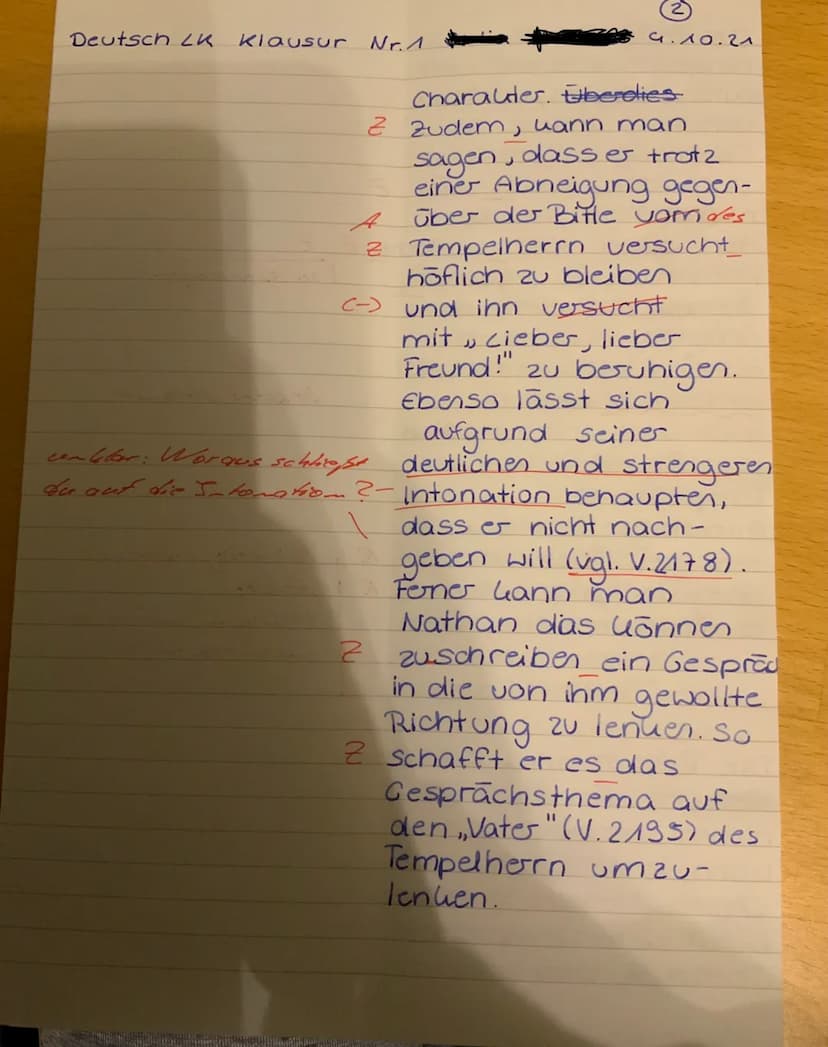 2
Deutsch LK Klausur Nr.1 4.10.21
Charakter. Überdies
Z zudem, kann man
sagen, dass er trotz
einer Abneigung gegen-
A über der Bitte vom des
Z Tempelherrn versucht
höflich zu bleiben
(-) und ihn versucht
mit „Lieber, lieber
Freund!" zu beruhigen.
Ebenso lässt sich
aufgrund seiner
unklar: Woraus schließt deutlichen und strengeren
du auf die Intonation? Intonation behaupten,
dass er nicht nach-
geben will (vgl. V.2178).
Ferner kann man
Nathan das Können
Z zuschreiben ein Gespräc
in die von ihm gewollte
Richtung zu lenken. So
Z schafft er es das
Gesprächsthema auf
den „Vater" (V.2195) des
Tempelherrn umzu-
lenken.